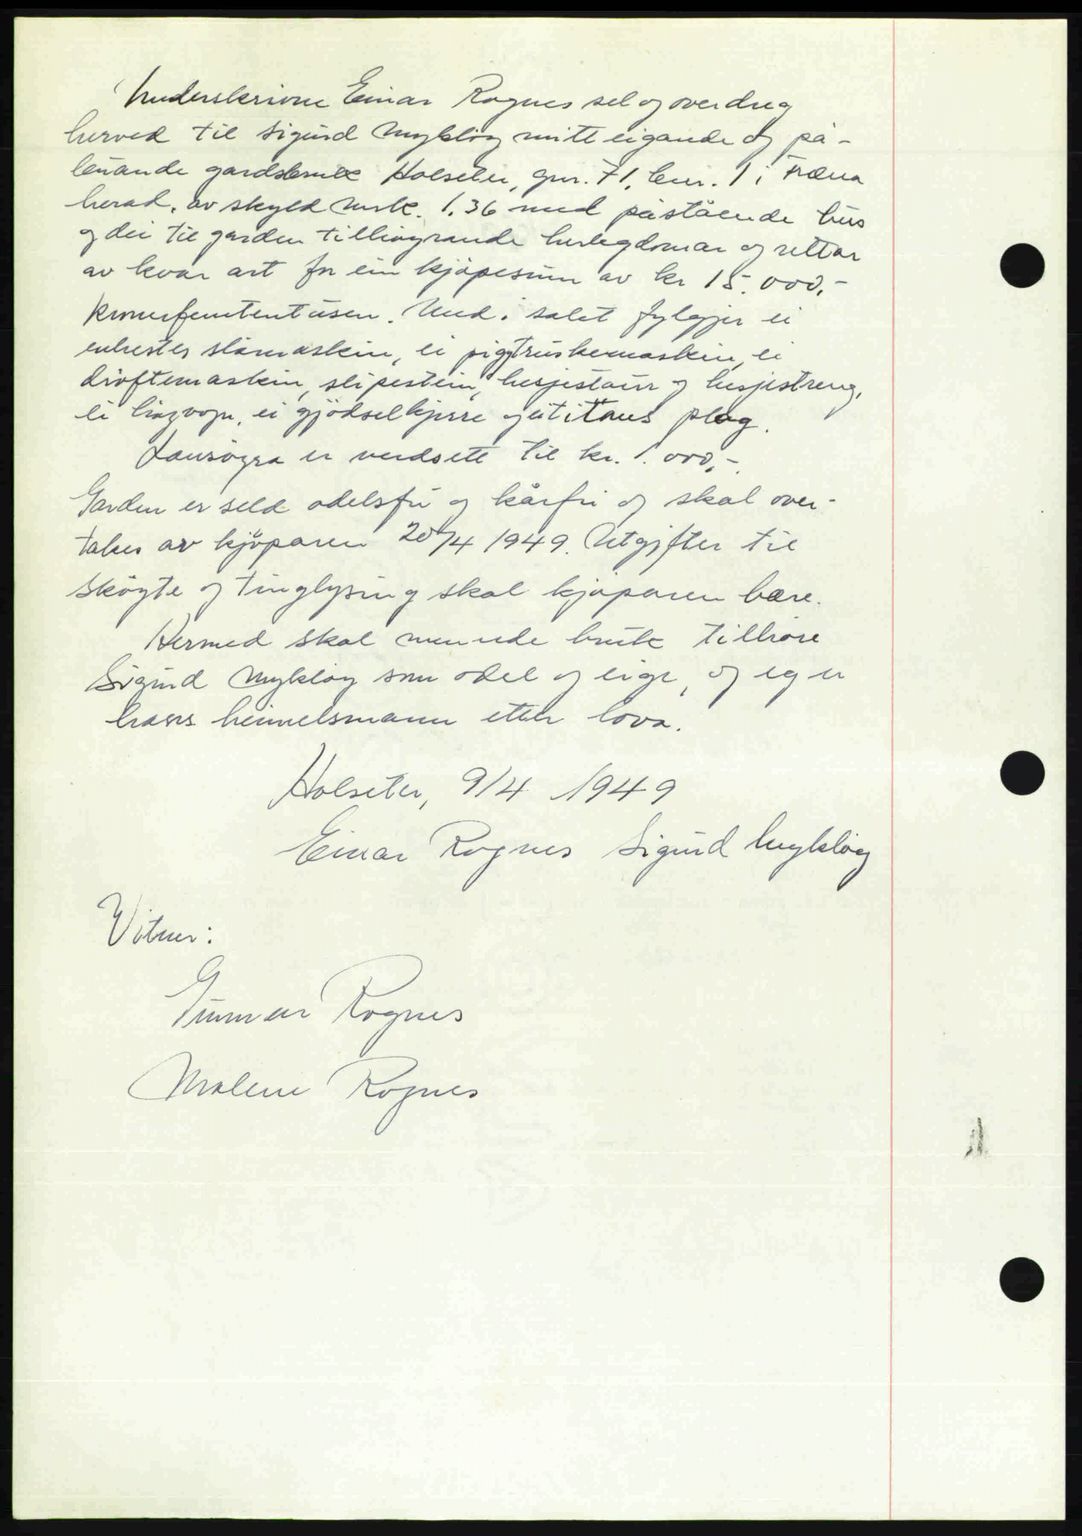 Underskrivne Einar Rognes sel og overdreg
herved til Sigurd Mykløy mitt eigande og på-
buande gardsbruk Holseter, gnr. 71, bnr. 1 i Fræna
herad, av skyld mrk. 1.36 med påståande hus
og dei til garden tilliggjande herlegdomar og rettar
av kvar art for ein kjøpesum av kr 15.000,-
kronerfemtentusen. Med i salet fylgjer ei
enhestes slåmaskin, ei piggtruskemaskin, ei
drøftemaskin, slipestein, hesjestaur og hesjestreng,
ei langvogn, ei gjødselkjerre og eit plog.
Lausøyra er verdsett til kr. 1.000,-.
Garden er seld odelsfri og kårfri og skal over-
takes av kjøparen 20/4 1949. Utgifter til
skøyte og tinglysing skal kjøparen bære.
Hermed skal nemnde bruk tilhøre
Sigurd Mykløy som odel og eige, og eg er
hans heimelsmann etter lova.
Holseter, 9/4 1949
Einar Rognes Sigurd Mykløy
Vitner:
Gunnar Rognes
Malene Rognes